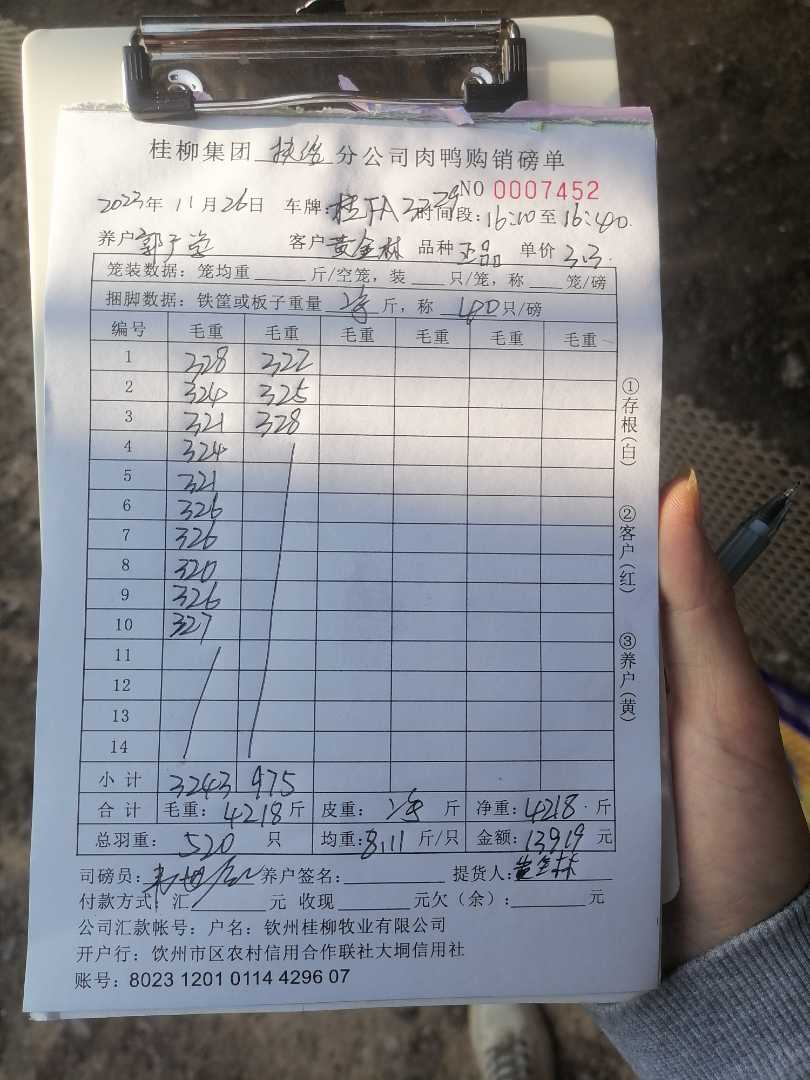 桂柳集团 分公司肉鸭购销磅单
NO 0007452
2023年 11月26日 车牌:桂FA3229 时间段:16:10至16:40.
养户 郭子学 客户 黄金林 品种 正品 单价 3.3.
笼装数据:笼均重____斤/空笼,装___只/笼,称____笼/磅
捆脚数据:铁筐或板子重量 净 斤,称 40只/磅
编号 毛重 毛重 毛重 毛重 毛重 毛重
1 328 322
2 324 325
3 321 328
4 324
5 321
6 326
7 326
8 320
9 326
10 327
11
12
13
14
小计 3243 975
合计 毛重:4218斤 皮重:净 斤 净重:4218.斤
总羽重:520 只 均重:8.11 斤/只 金额:13919 元
司磅员: 养户签名:________ 提货人:黄金林
付款方式:汇______元 收现______元欠(余):______元
公司汇款帐号:户名:钦州桂柳牧业有限公司
开户行:饮州市区农村信用合作联社大垌信用社
账号:8023 1201 0114 4296 07
①存根(白)
②客户(红)
③养户(黄)